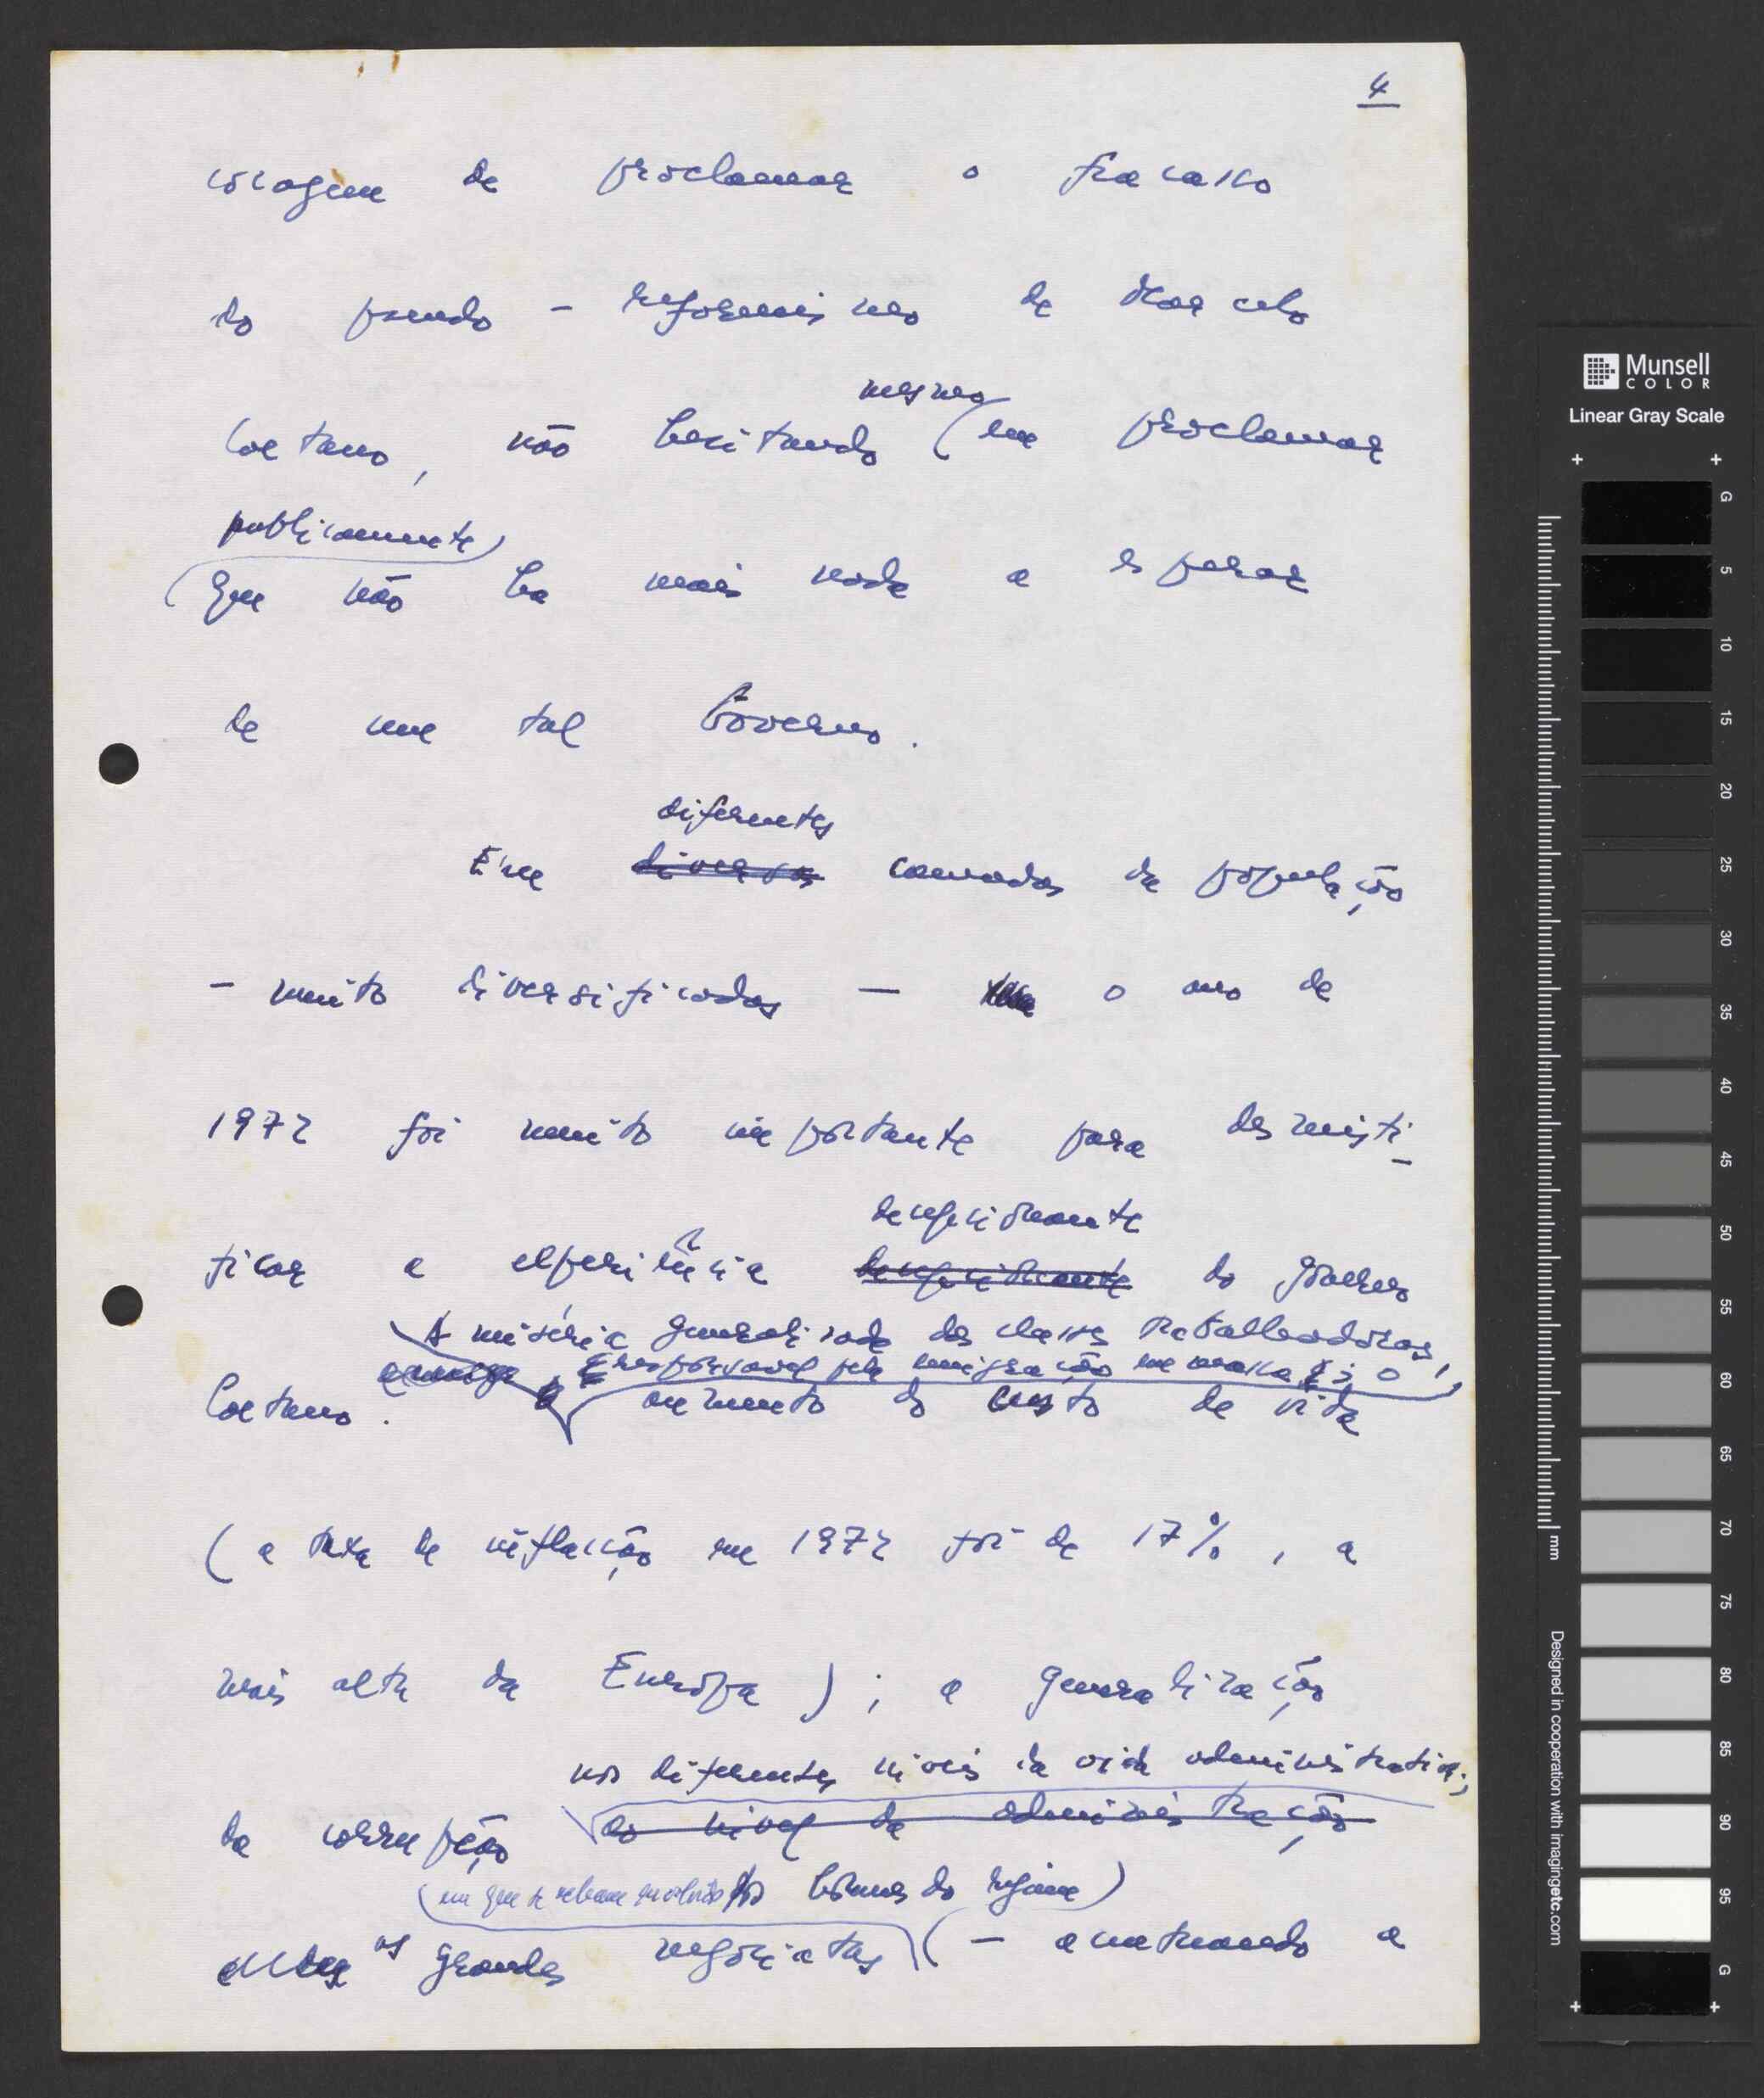 4
coragem de proclamar o fracasso
do pseudo - reformismo de Marcelo
mesmo
Caetano, não hesitando (em proclamar
publicamente)
(que não ha mais nada a esperar
de um tal Govêrno.
diferentes
Em diversas camadas da população
- muito diversificadas - o ano de
1972 foi muito importante para desmisti-
decepcionante
ficar a experiência decepcionante do govêrno
A miséria generalizada das classes trabalhadoras,
responsavel pela emigração em massa; o
Caetano. aumento do custo de vida
(a taxa de inflacção em 1972 foi de 17%, a
mais alta da Europa); a generalização
nos diferentes niveis da vida administrativa;
da corrupção ao nivel da administração
(em que se acham envolvidos homens do regime)
os grandes negociatas (- a
Munsell
COLOR
Linear Gray Scale
G
5
10
15
20
25
30
35
40
45
50
55
60
65
70
75
80
85
90
95
G
mm
Designed in cooperation with imagingetc.com